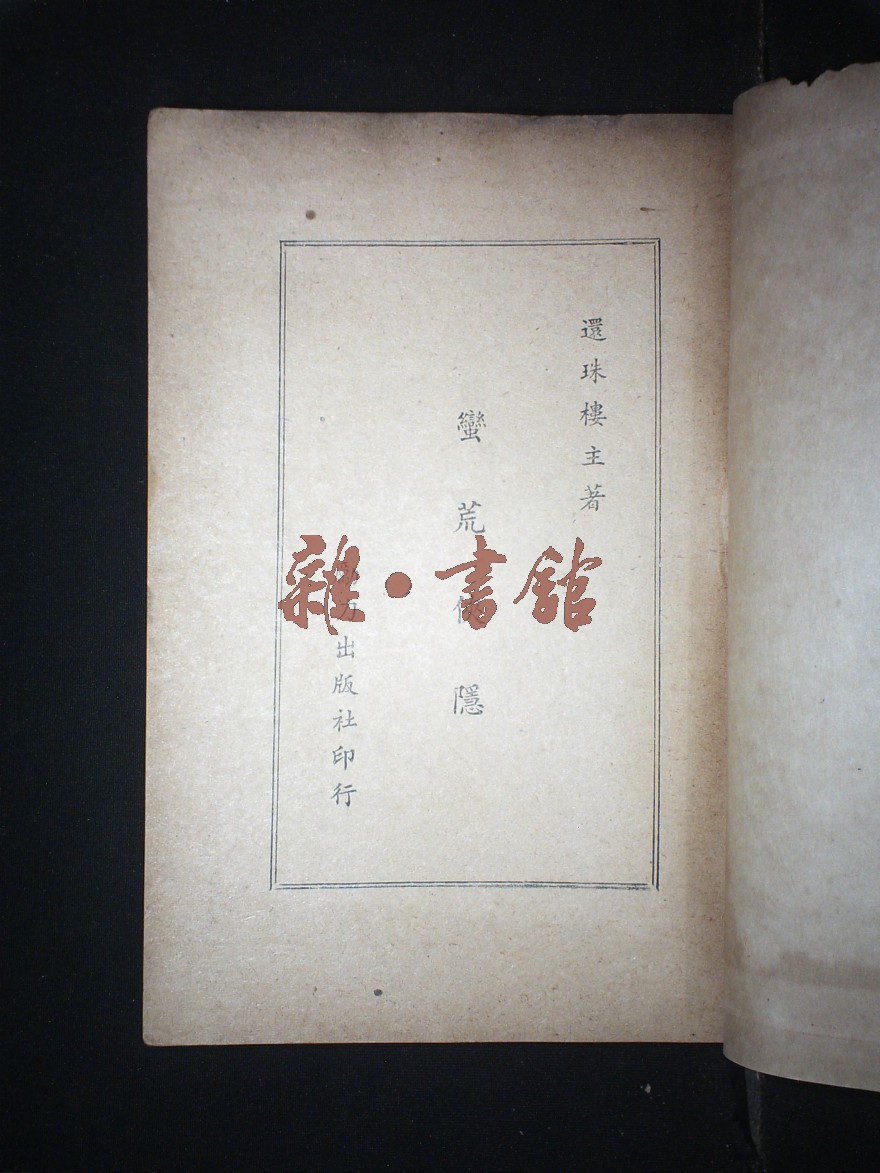 還珠樓主著
蠻荒俠隱
力出版社印行
雜・書館